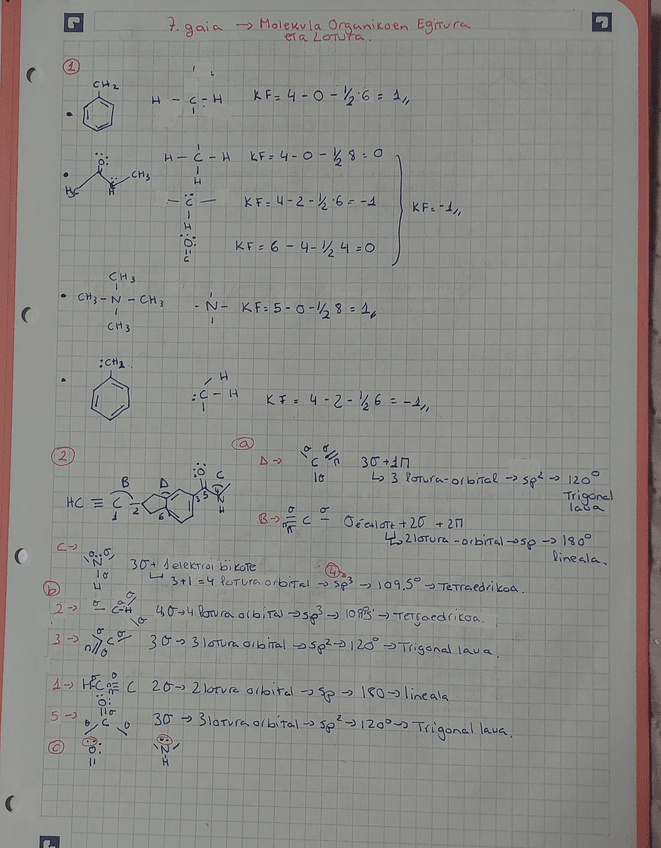 7. gaia → Molekula Organikoen Egitura
eta Lotura.
①
CH2
H - C - H KF= 4 - 0 - 1/2·6 = 1,,
H - C - H KF= 4 - 0 - 1/2 8 = 0
H
:O:
H3C CH3
H
- C̈ - KF= 4 - 2 - 1/2·6 = -1
H
KF= -1,,
:Ö: KF= 6 - 4 - 1/2 4 = 0
C
CH3
CH3 - N - CH3 - N - KF= 5 - 0 - 1/2 8 = 1,,
CH3
:CH2
H
:C - H KF= 4 - 2 - 1/2 6 = -1,,
②
ⓐ
A → σ C σ π 3σ + 1π
1σ ↳ 3 lotura-orbital → sp² → 120°
Trigonal
laua
:O:
B A C
HC ≡ C 1 2 3 4 5 6 N H
B → ≡ C - + 2σ + 2π
↳ 2 lotura-orbital → sp → 180°
lineala.
C → σ N̈ σ 3σ + 1 elektroi bikote
1σ H ↳ 3+1 = 4 lotura orbital → sp³ → 109,5° → Tetraedrikoa.
④
ⓑ
2 → σ C-H σ 4σ → 4 lotura orbital → sp³ → 109,5° → Tetraedrikoa.
3 → σ C σ π σ 3σ → 3 lotura orbital → sp² → 120° → Trigonal laua.
1 → H C ≡ C 2σ → 2 lotura orbital → sp → 180 → lineala
:O:
5 → σ C σ 3σ → 3 lotura orbital → sp² → 120° → Trigonal laua.
ⓒ :Ö: N̈
H